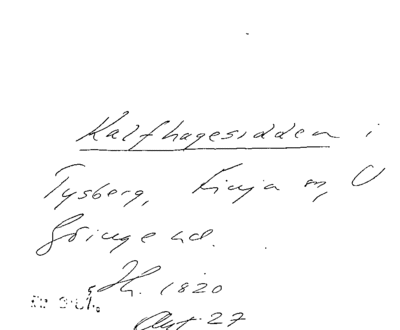 Kalfhagesidden i
Tysberg, Linja m, U
Gringend.
Jh. 1820
Akt 27